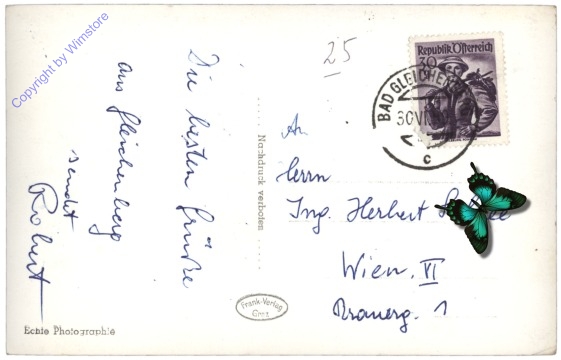 Copyright by Wimstore
Die besten Grüße
aus Gleichenberg
sendet
Robert
Echte Photographie
Nachdruck verboten
Frank-Verlag
Graz
25
Republik Österreich
30
BAD GLEICHENBERG
30.VI
c
An
Herrn
Ing. Herbert
Wien, VI
Brauerg. 1